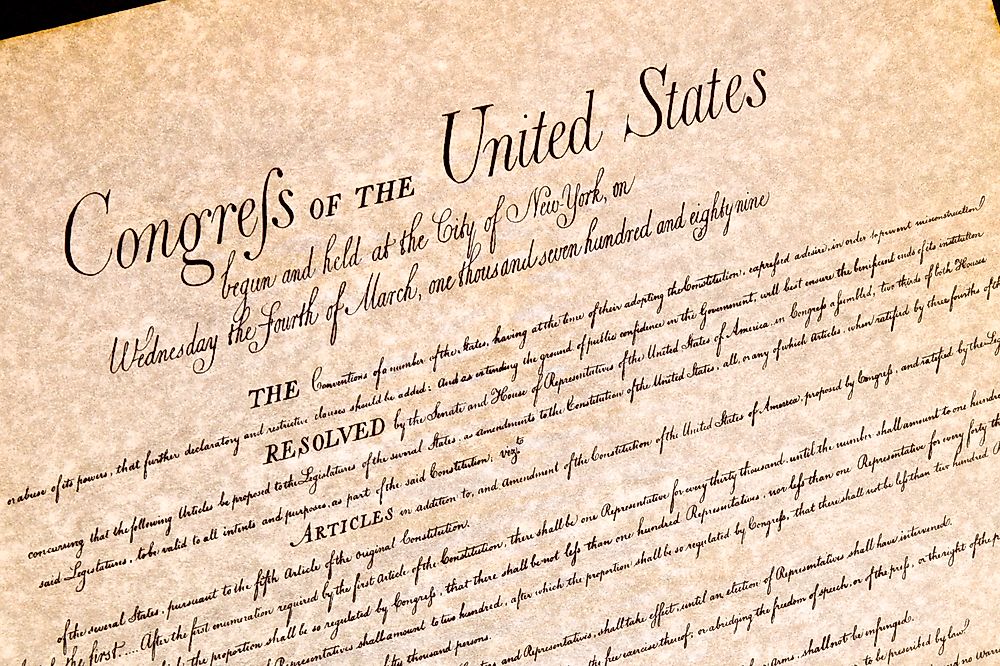 Congreſs OF THE United States
begun and held at the City of New-York, on
Wednesday the Fourth of March, one thousand seven hundred and eighty nine
THE Conventions of a number of the States, having at the time of their adopting the Constitution, expreſsed a desire, in order to prevent misconstruction
or abuse of its powers, that further declaratory and restrictive clauses should be added: And as extending the ground of public confidence in the Government, will best ensure the beneficent ends of its institution
RESOLVED by the Senate and House of Representatives of the United States of America, in Congreſs aſsembled, two thirds of both Houses
concurring that the following Articles be proposed to the Legislatures of the several States, as amendments to the Constitution of the United States, all, or any of which Articles, when ratified by three fourths of the
said Legislatures, to be valid to all intents and purposes, as part of the said Constitution; vizt
ARTICLES in addition to, and amendment of the Constitution of the United States of America, proposed by Congreſs, and ratified by the Leg
of the several States, pursuant to the fifth Article of the original Constitution.
the first.... After the first enumeration required by the first Article of the Constitution, there shall be one Representative for every thirty thousand, until the number shall amount to one hundre
the proportion shall be so regulated by Congreſs, that there shall be not leſs than one hundred Representatives, nor leſs than one Representative for every forty th
Representatives shall amount to two hundred, after which the proportion shall be so regulated by Congreſs, that there shall not be leſs than two hundred
thousand persons.
and Representatives, shall take effect, until an election of Representatives shall have intervened.
the free exercise thereof; or abridging the freedom of speech, or of the preſs, or the right of the
arms, shall not be infringed.
to be prescribed by law.